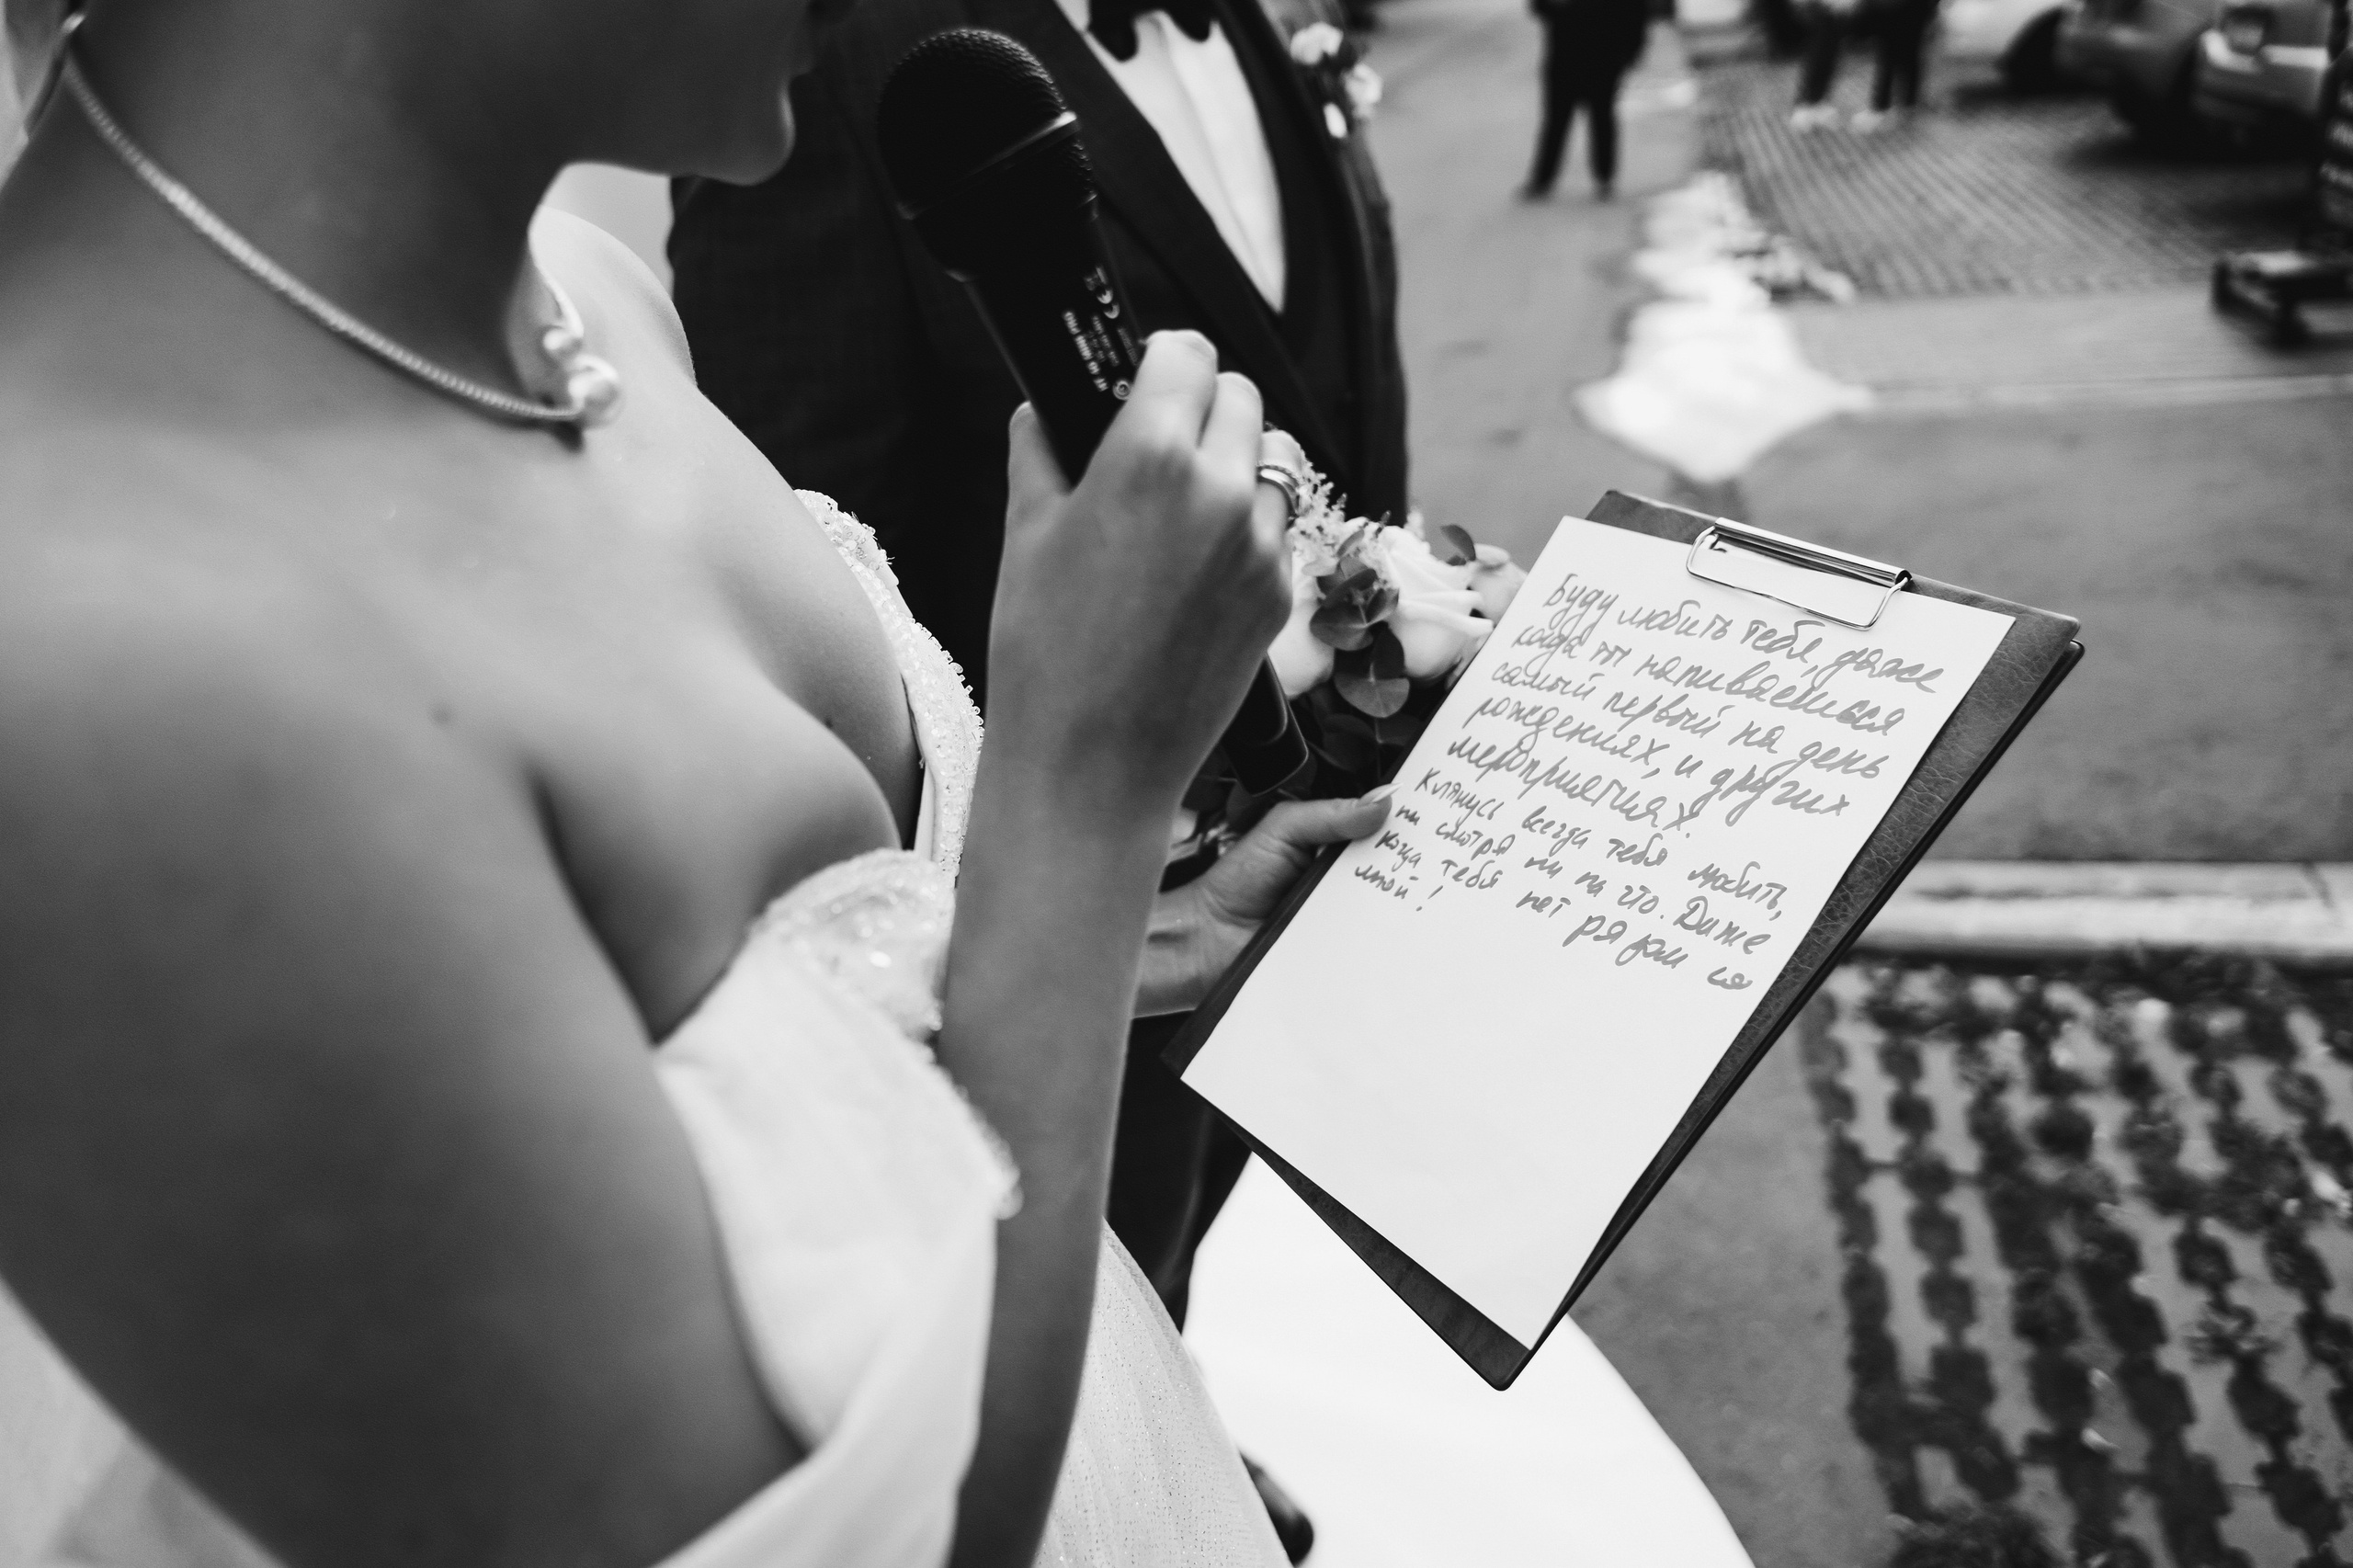 Буду любить тебя, даже
когда ты напиваешься
самый первый на день
рождениях, и других
мероприятиях.
Клянусь всегда тебя любить,
ни смотря ни на что. Даже
когда тебя нет рядом со
мной!